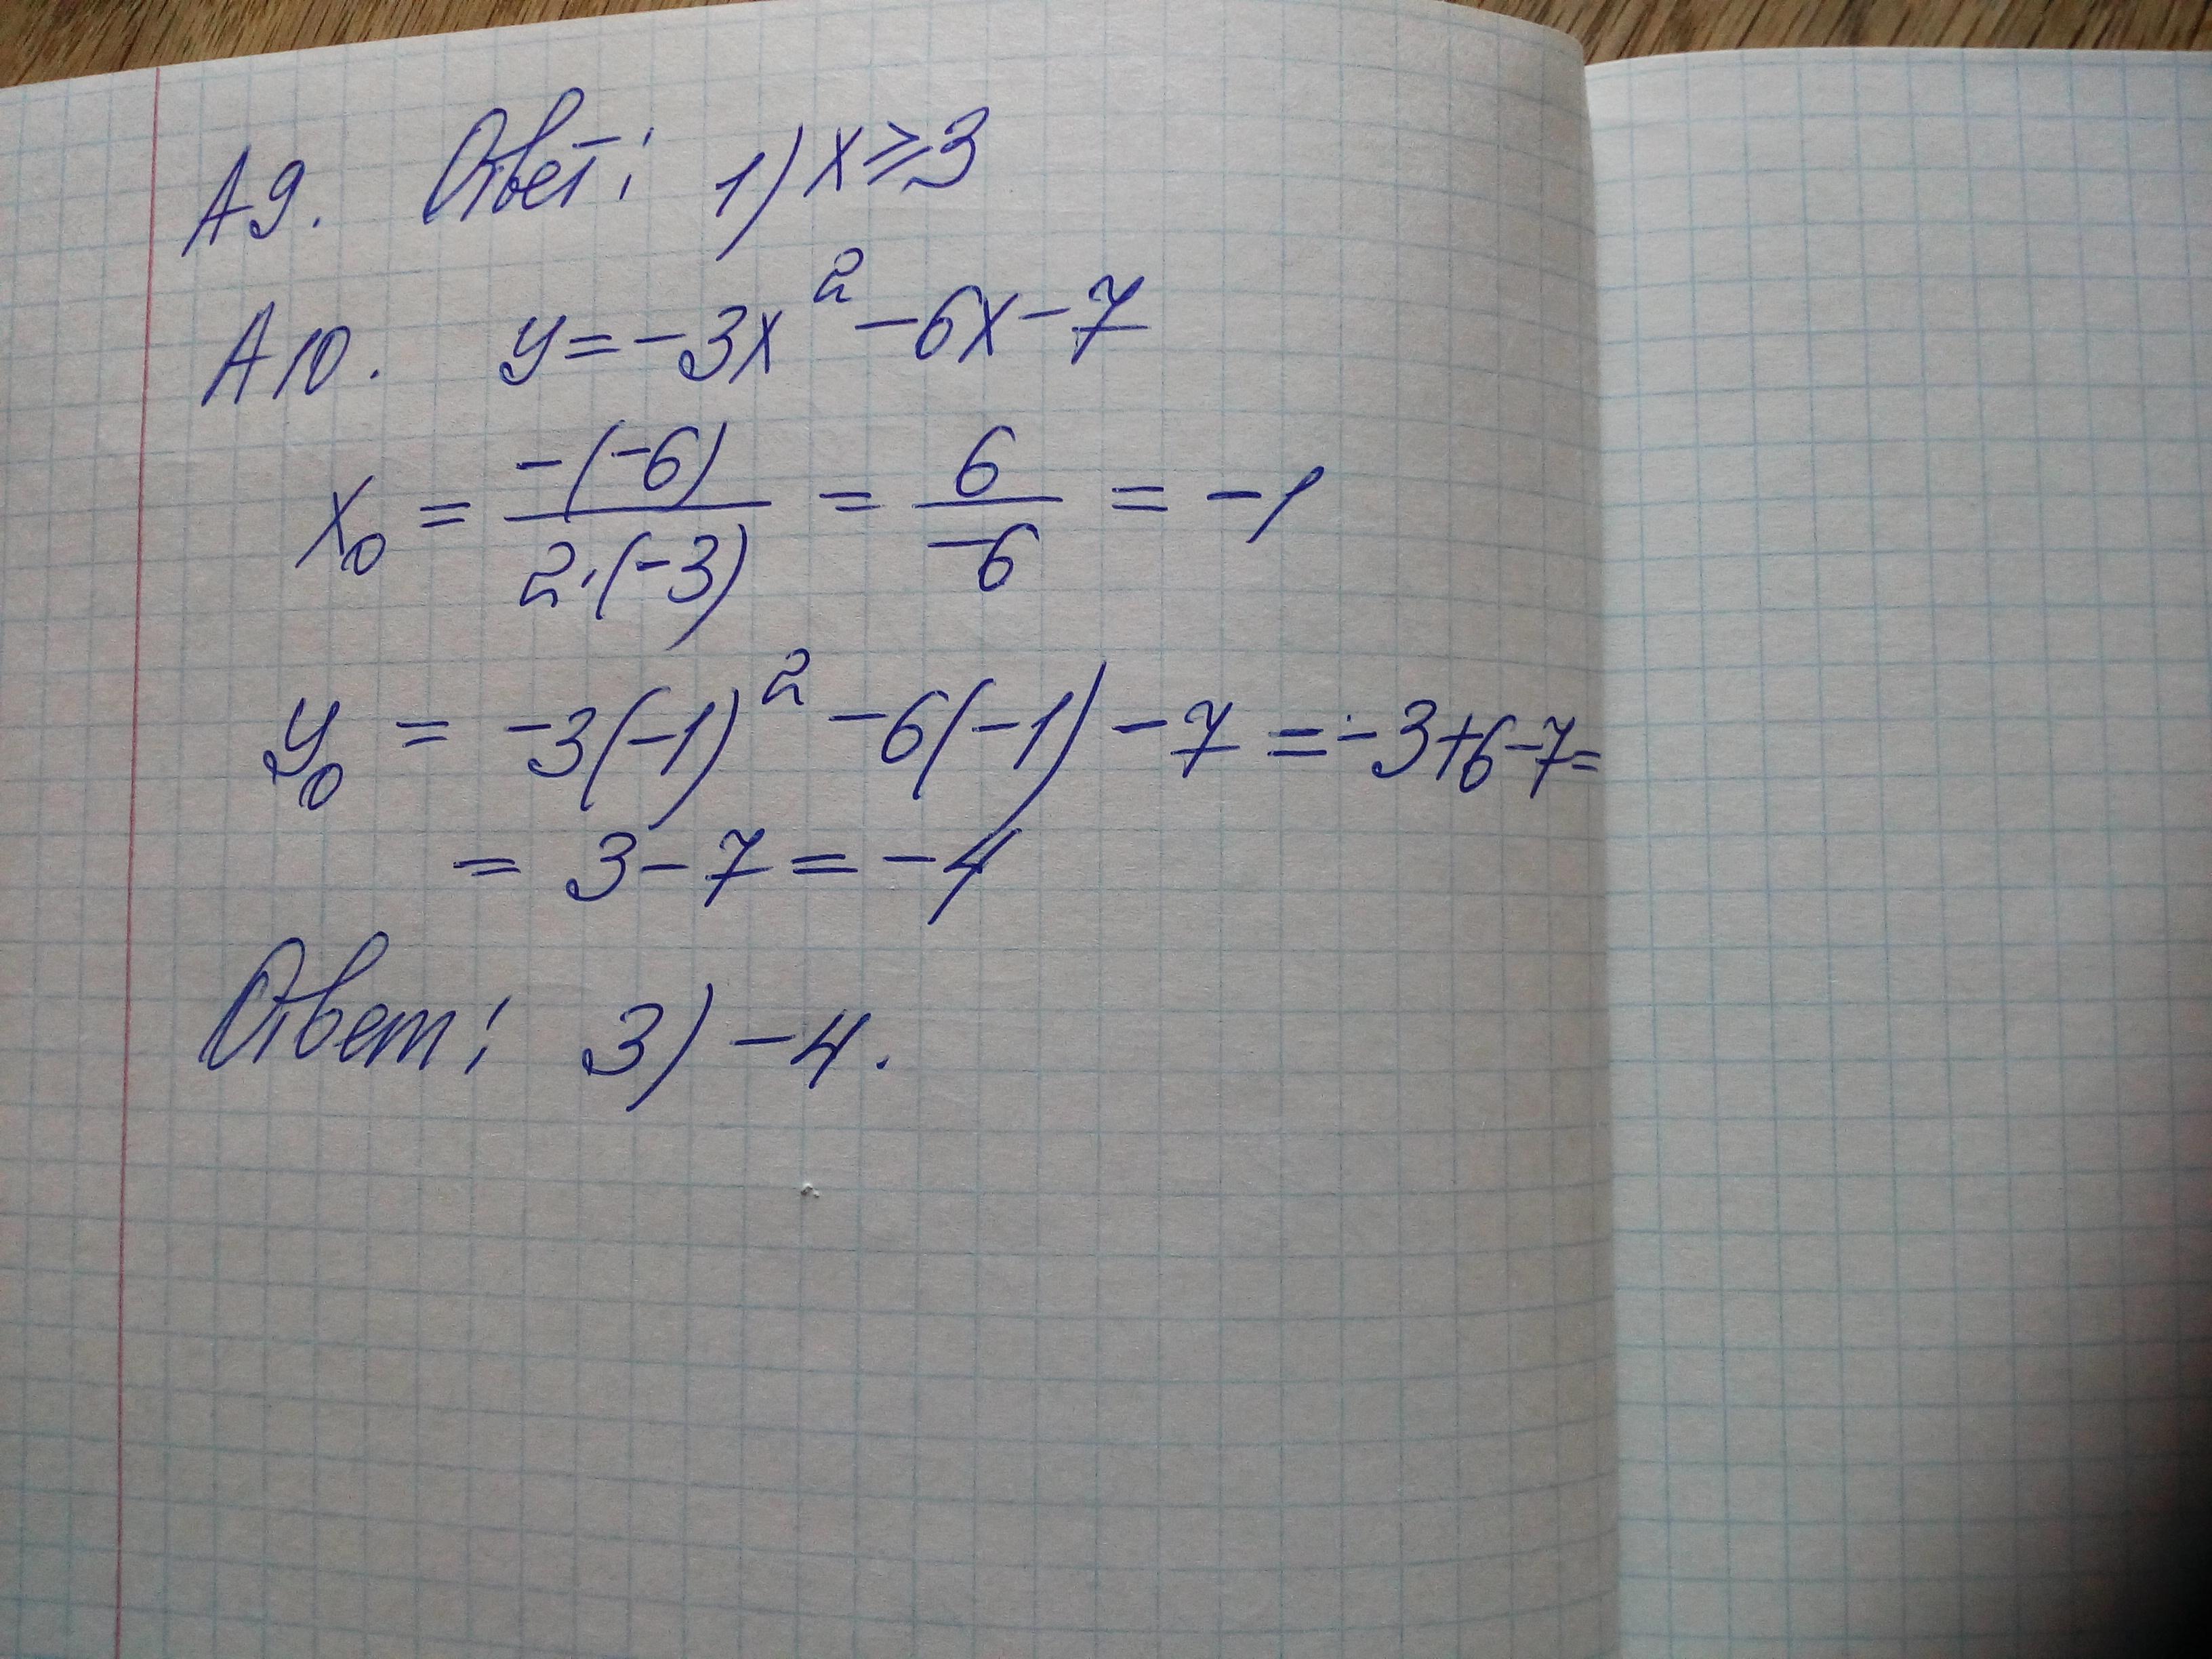 А9. Ответ: 1) x ≥ 3
А10. y = -3x² - 6x - 7
x₀ = -(-6) / 2·(-3) = 6 / -6 = -1
y₀ = -3(-1)² - 6(-1) - 7 = -3+6-7=
= 3 - 7 = -4
Ответ: 3) -4.